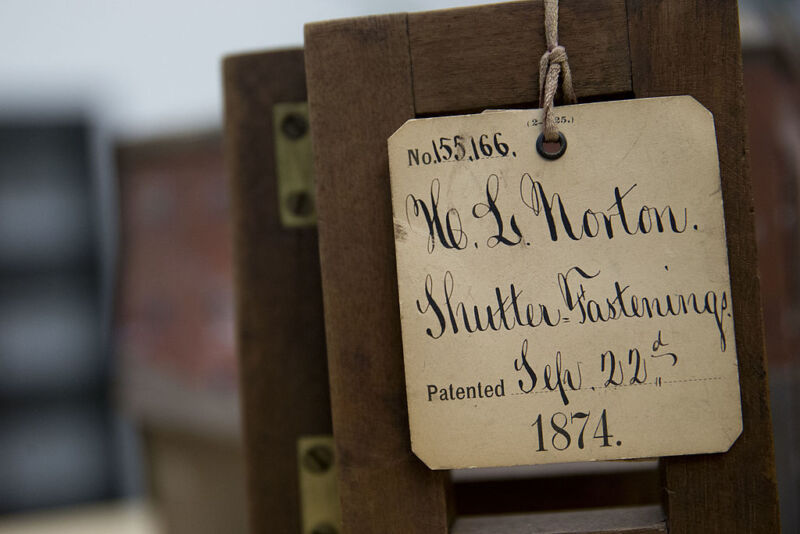 No. 155,166.
H. L. Norton.
Shutter-Fastenings.
Patented Sep. 22d
1874.